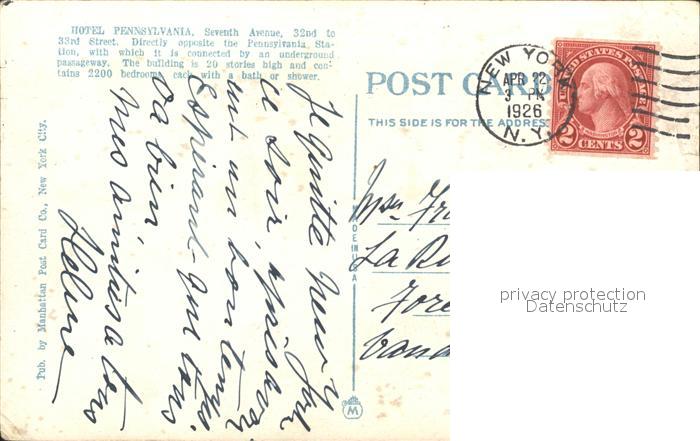 HOTEL PENNSYLVANIA, Seventh Avenue, 32nd to
33rd Street. Directly opposite the Pennsylvania Sta-
tion, with which it is connected by an underground
passageway. The building is 20 stories high and con-
tains 2200 bedrooms each with a bath or shower.
Je quitte New York
ce soir, après avoir
eu un bon temps.
Espérant que tous
va bien,
Mes amitiés a tous
Hélène
Pub. by Manhattan Post Card Co., New York City.
MADE IN U.S.A
M
POST CARD
THIS SIDE IS FOR THE ADDRESS
NEW YORK
APR 22
3 PM
1926
N.Y.
UNITED STATES POSTAGE
WASHINGTON
2 CENTS 2
La
privacy protection
Datenschutz